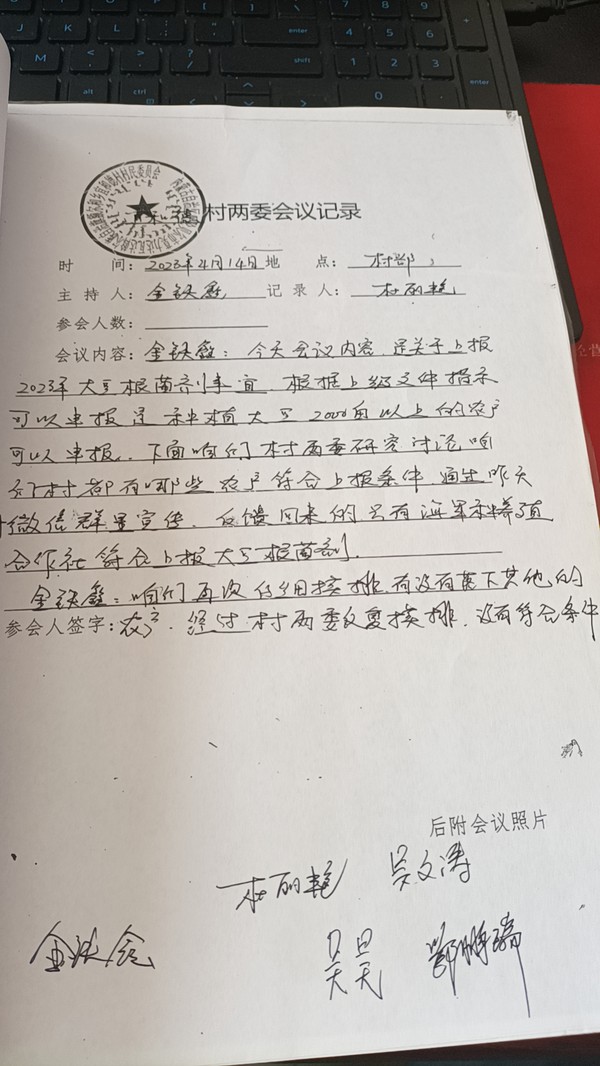 村两委会议记录
时 间：2023年4月14日 地 点：村部
主 持 人：金铁鑫 记 录 人：杜丽艳
参会人数：
会议内容：金铁鑫：今天会议内容，是关于上报
2023年大豆根菌剂事宜，根据上级文件指示
可以申报是种植大豆2000亩以上的农户
可以申报，下面咱们村两委研究讨论咱
们村都有哪些农户符合上报条件，通过昨天
微信群里宣传，反馈回来的只有海军种养殖
合作社符合上报大豆根菌剂。
金铁鑫：咱们再次仔细摸排，有没有落下其他的
参会人签字：农户，经过村两委反复摸排，没有符合条件
后附会议照片
杜丽艳 吴文涛
金铁鑫 吴昊